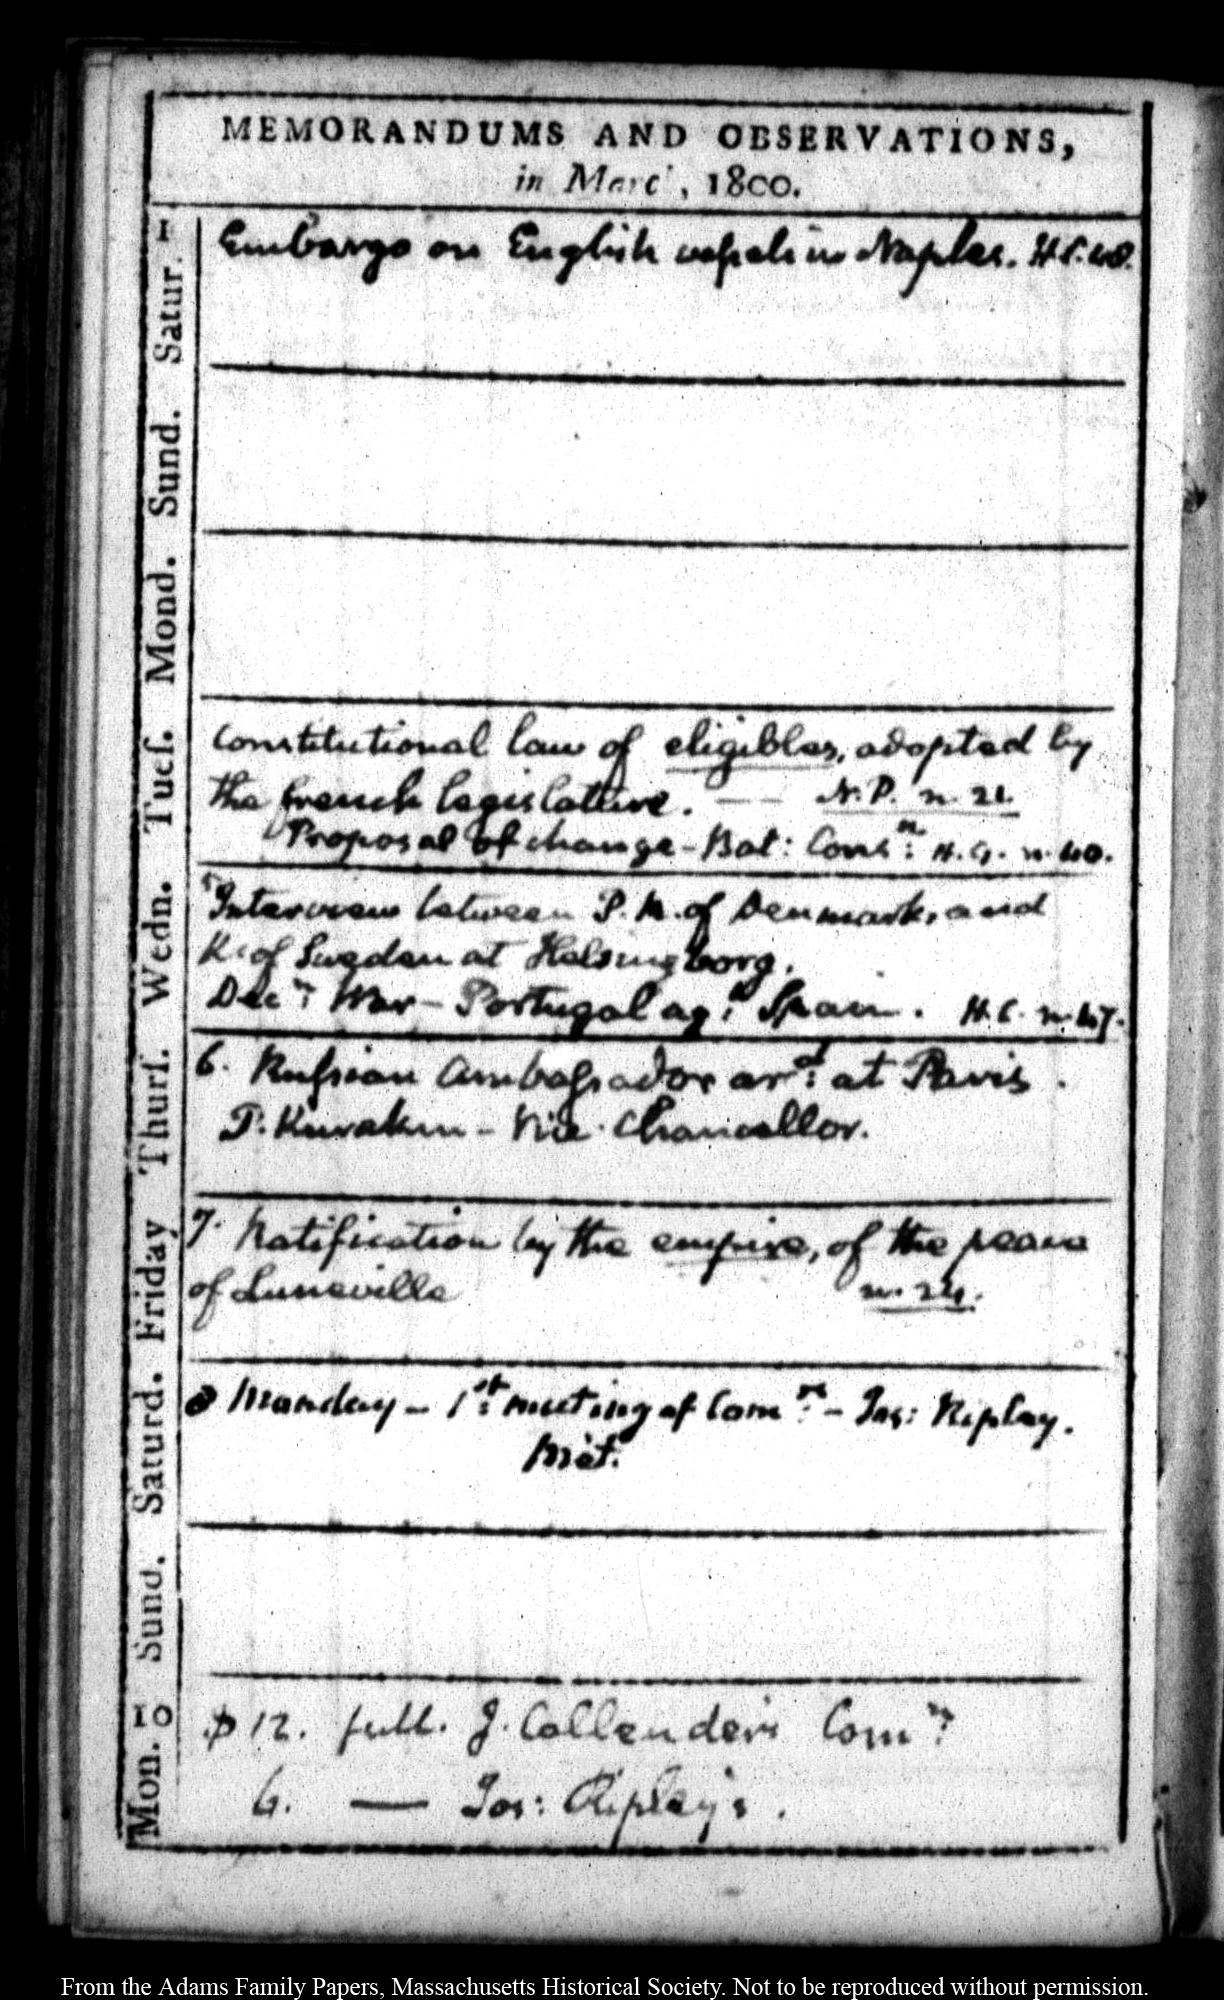 MEMORANDUMS AND OBSERVATIONS,
in Marc , 1800.
Satur. 1
Embargo on English vessels in Naples. H.C. 48.
Sund.
Mond.
Tues.
Constitutional law of eligibles, adopted by
the french legislature. — N.P. n. 21.
Proposal of change - Bat: Consn: H.G. n. 40.
Wedn.
Interview between P.R. of Denmark, and
K. of Sweden at Helsingborg.
Decn: War - Portugal agt: Spain. H.C. n. 47.
Thurs.
6. Russian Ambassador ard: at Paris.
P. Kurakin - Vice-Chancellor.
Friday
7. Ratification by the empire, of the peace
of Luneville n. 24.
Saturd.
8 Monday - 1st: meeting of Comrs: - Jos: Ripley.
Sund.
Mon. 10
$12. full. J. Callender's Comn:
6. — Jos: Ripley's.
From the Adams Family Papers, Massachusetts Historical Society. Not to be reproduced without permission.